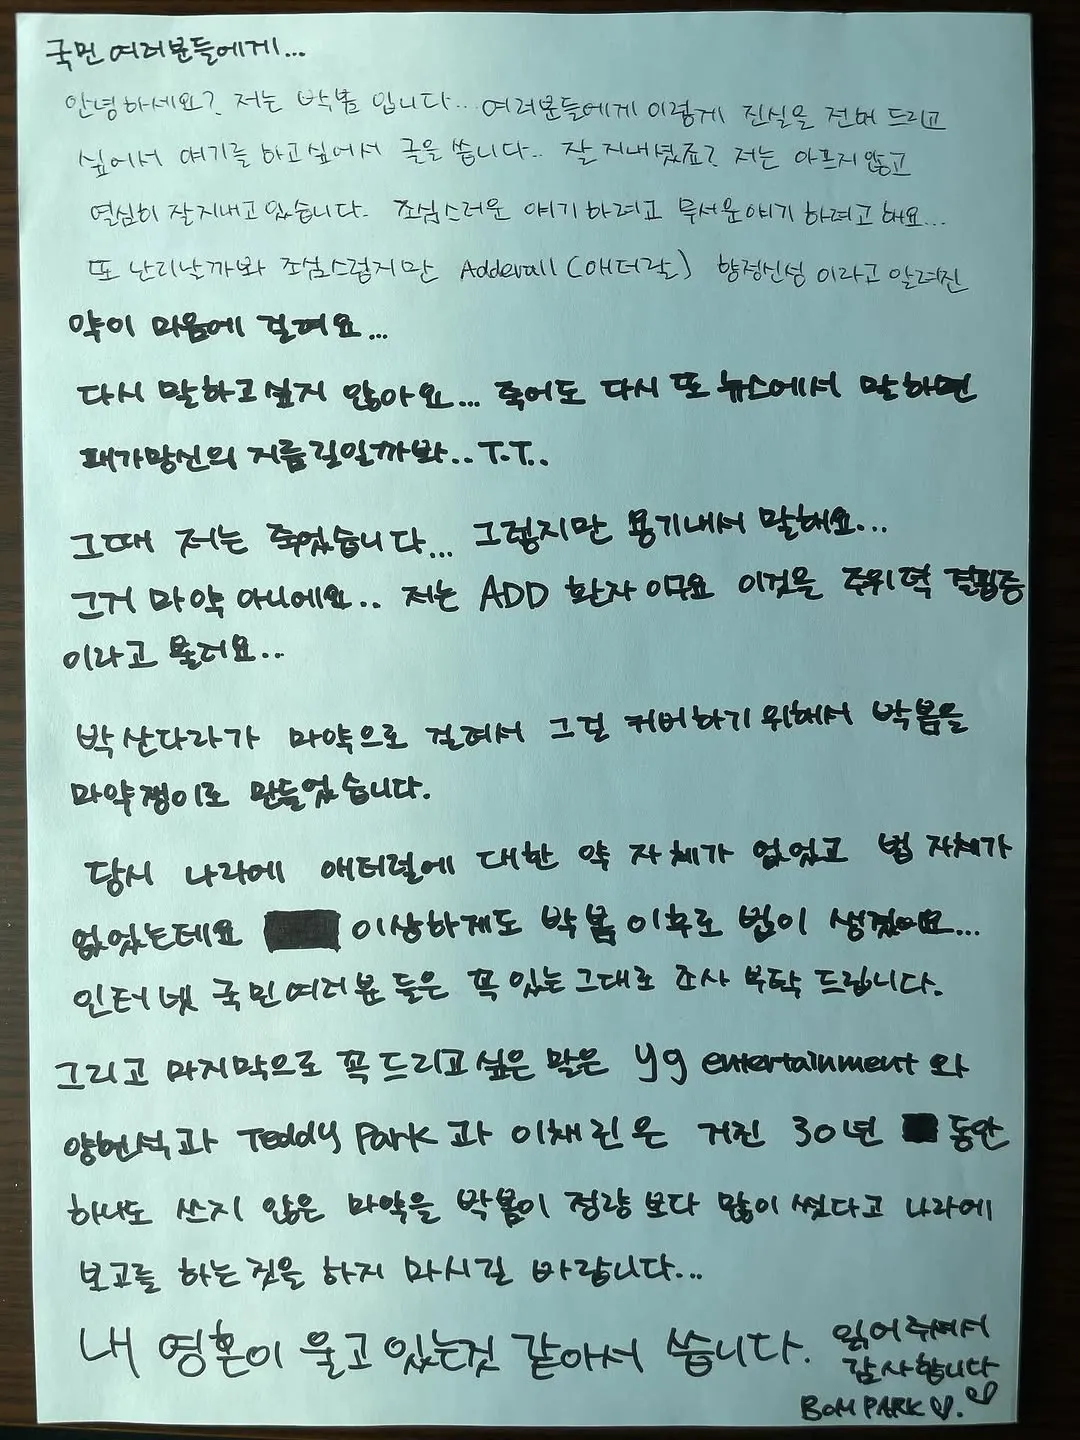 국민 여러분들에게...
안녕하세요? 저는 박봄 입니다... 여러분들에게 이렇게 진실을 전해 드리고
싶어서 얘기를 하고싶어서 글을 씁니다.. 잘 지내셨죠? 저는 아프지 않고
열심히 잘지내고 있습니다. 조심스러운 얘기하려고 무서운얘기 하려고 해요...
또 난리날까봐 조심스럽지만 Adderall (애더랄) 향정신성 이라고 알려진
약이 마음에 걸려요...
다시 말하고싶지 않아요... 죽어도 다시 또 뉴스에서 말하면
패가망신의 지름길일까봐.. T.T..
그때 저는 죽었습니다... 그렇지만 용기내서 말해요...
그거 마약 아니에요.. 저는 ADD 환자 이구요 이것을 주위력 결핍증
이라고 불러요..
박산다라가 마약으로 걸려서 그걸 커버하기 위해서 박봄을
마약쟁이로 만들었습니다.
당시 나라에 애더럴에 대한 약 자체가 없었고 법 자체가
없었는데요 이상하게도 박봄 이후로 법이 생겼어요...
인터넷 국민여러분 들은 꼭 있는그대로 조사 부탁 드립니다.
그리고 마지막으로 꼭 드리고싶은 말은 yg entertainment 와
양현석과 Teddy Park 과 이채린은 거진 30년 동안
하나도 쓰지 않은 마약을 박봄이 정량 보다 많이 썼다고 나라에
보고를 하는것을 하지 마시길 바랍니다...
내 영혼이 울고 있는것 같아서 씁니다. 읽어주셔서
감사합니다
BOM PARK ♡. ♡